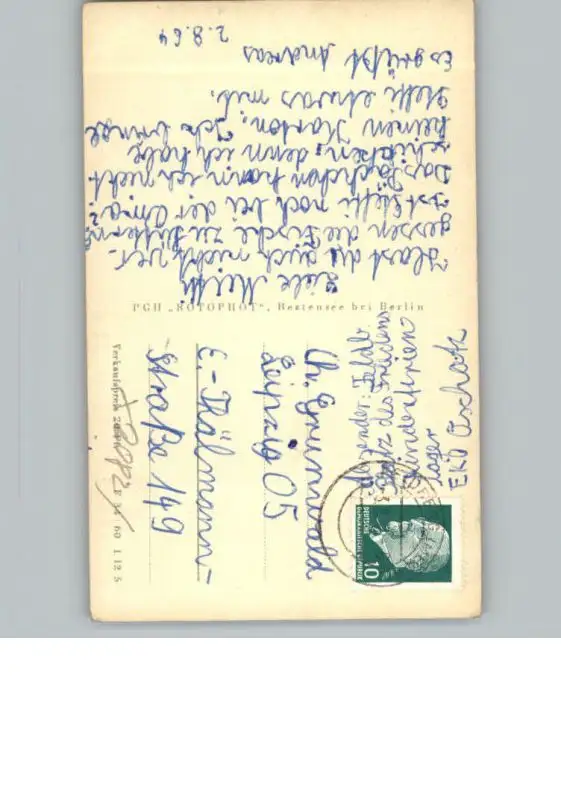 2.8.64
Liebe Meith
Hast du auch nicht ver-
gessen die Fische zu füttern?
Ist Steffi noch bei der Oma?
Das Päckchen kann ich nicht
schicken, denn ich habe
keinen Karton. Ich bringe
Steffi etwas mit.
Es grüßt Andreas
PGH „ROTOPHOT", Bestensee bei Berlin
Absender:
Platz des Friedens
Kinderferien
lager
EKO Oschatz
DEUTSCHE
DEMOKRATISCHE REPUBLIK
10
Ch. Grunwald
Leipzig O5
E.-Thälmann-
Straße 149
Verkaufspreis 20
60 1 12 5